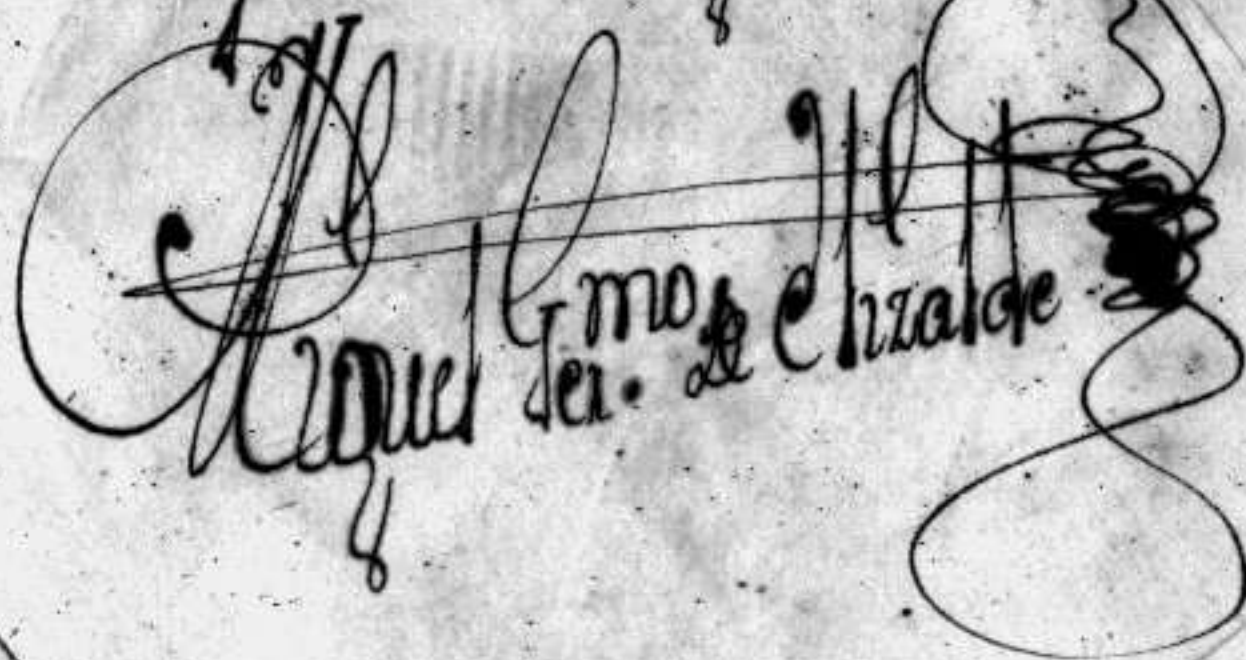 Miguel Ger.mo de elizalde